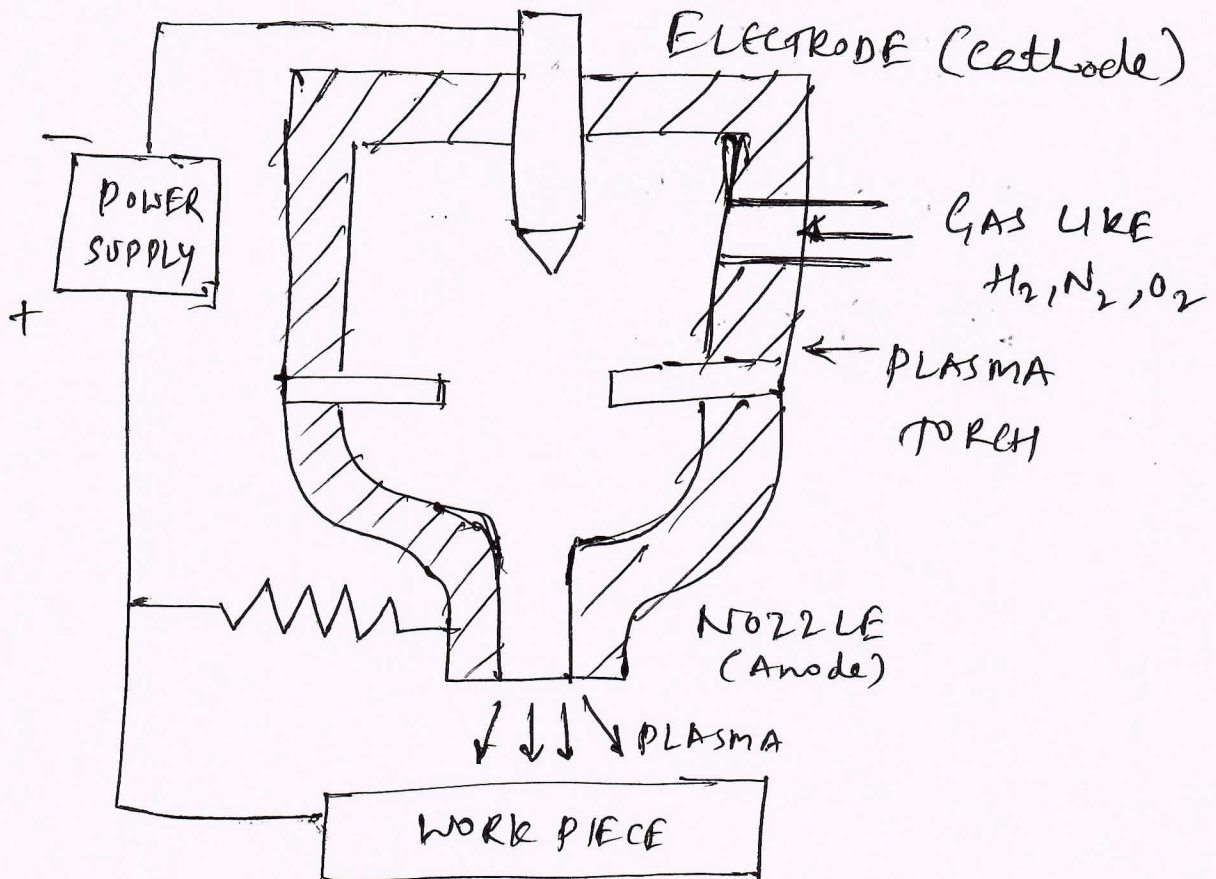 ELECTRODE (Cathode)
−
POWER
SUPPLY
+
GAS LIKE
H₂, N₂, O₂
PLASMA
TORCH
NOZZLE
(Anode)
PLASMA
WORK PIECE